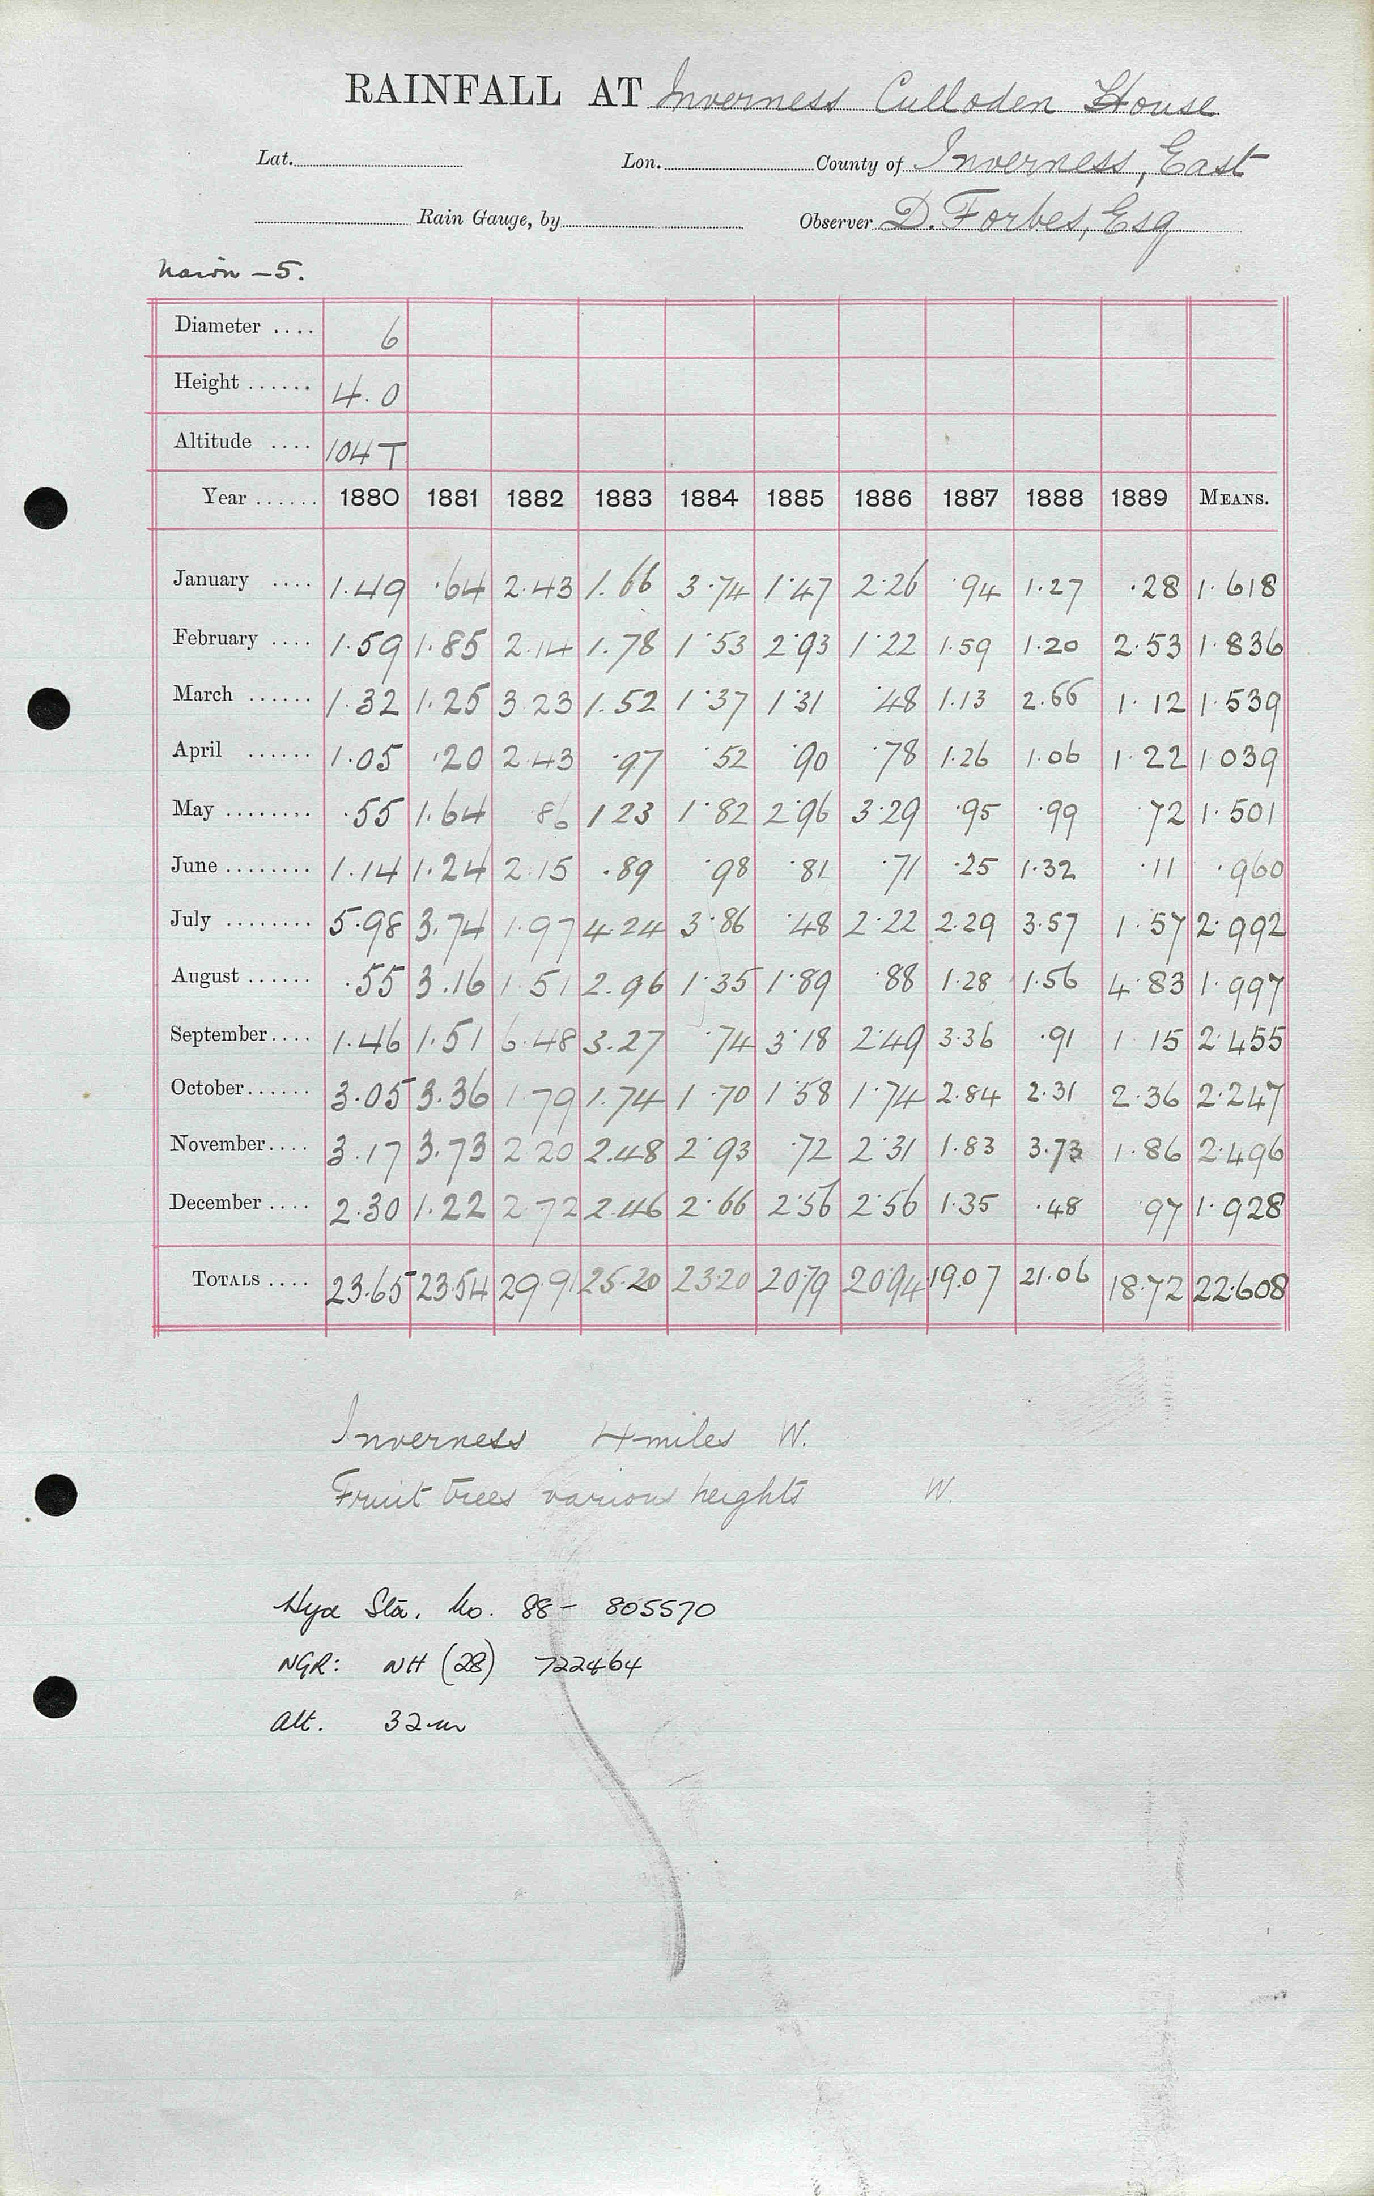 RAINFALL AT Inverness Culloden House
Lat. Lon. County of Inverness, East
Rain Gauge, by Observer D. Forbes, Esq
Nairn - 5.
Diameter .... 6
Height ...... 4.0
Altitude .... 104 T
Year ...... 1880 1881 1882 1883 1884 1885 1886 1887 1888 1889 MEANS.
January .... 1.49 .64 2.43 1.66 3.74 1.47 2.26 .94 1.27 .28 1.618
February .... 1.59 1.85 2.14 1.78 1.53 2.93 1.22 1.59 1.20 2.53 1.836
March ...... 1.32 1.25 3.23 1.52 1.37 1.31 .48 1.13 2.66 1.12 1.539
April ...... 1.05 .20 2.43 .97 .52 .90 .78 1.26 1.06 1.22 1.039
May ........ .55 1.64 .86 1.23 1.82 2.96 3.29 .95 .99 .72 1.501
June ........ 1.14 1.24 2.15 .89 .98 .81 .71 .25 1.32 .11 .960
July ........ 5.98 3.74 1.97 4.24 3.86 .48 2.22 2.29 3.57 1.57 2.992
August ...... .55 3.16 1.51 2.96 1.35 1.89 .88 1.28 1.56 4.83 1.997
September .... 1.46 1.51 6.48 3.27 .74 3.18 2.49 3.36 .91 1.15 2.455
October ...... 3.05 3.36 1.79 1.74 1.70 1.58 1.74 2.84 2.31 2.36 2.247
November .... 3.17 3.73 2.20 2.48 2.93 .72 2.31 1.83 3.73 1.86 2.496
December .... 2.30 1.22 2.72 2.46 2.66 2.56 2.56 1.35 .48 .97 1.928
TOTALS .... 23.65 23.54 29.91 25.20 23.20 20.79 20.94 19.07 21.06 18.72 22.608
Inverness 4 miles W.
Fruit trees various heights W.
Hyd Sta. No. 88- 805570
NGR: NH (28) 722464
Alt. 32m